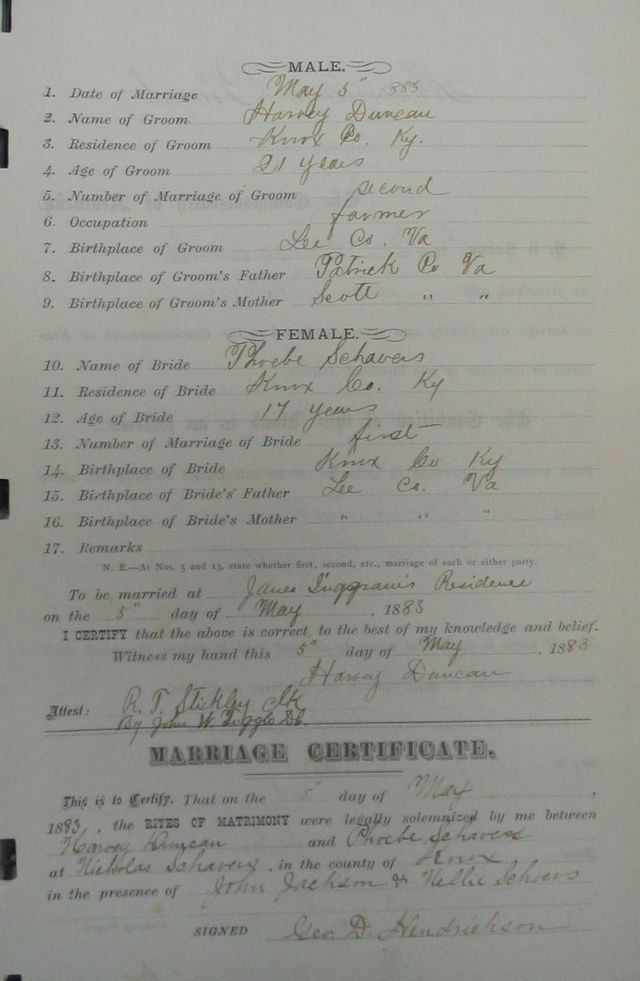 MALE.
1. Date of Marriage May 5" 1883
2. Name of Groom Harvey Duncan
3. Residence of Groom Knox Co. Ky.
4. Age of Groom 21 years
5. Number of Marriage of Groom second
6. Occupation farmer
7. Birthplace of Groom Lee Co. Va
8. Birthplace of Groom's Father Patrick Co Va
9. Birthplace of Groom's Mother Scott " "
FEMALE.
10. Name of Bride Phoebe Schavers
11. Residence of Bride Knox Co. Ky
12. Age of Bride 17 years
13. Number of Marriage of Bride first
14. Birthplace of Bride Knox Co Ky
15. Birthplace of Bride's Father Lee Co. Va
16. Birthplace of Bride's Mother " " "
17. Remarks
N. B.—At Nos. 5 and 13, state whether first, second, etc., marriage of each or either party.
To be married at James Residence
on the 5" day of May , 1883
I CERTIFY that the above is correct, to the best of my knowledge and belief.
Witness my hand this 5" day of May , 1883
Harvey Duncan
Attest: R. T. Stickley Clk
By John W. Tuggle D.C.
MARRIAGE CERTIFICATE.
This is to Certify, That on the 5" day of May ,
1883, the RITES OF MATRIMONY were legally solemnized by me between
Harvey Duncan and Phoebe Schavers
at Nicholas Schavers, in the county of Knox
in the presence of John Jackson & Nellie
SIGNED Geo. D. Hendrickson